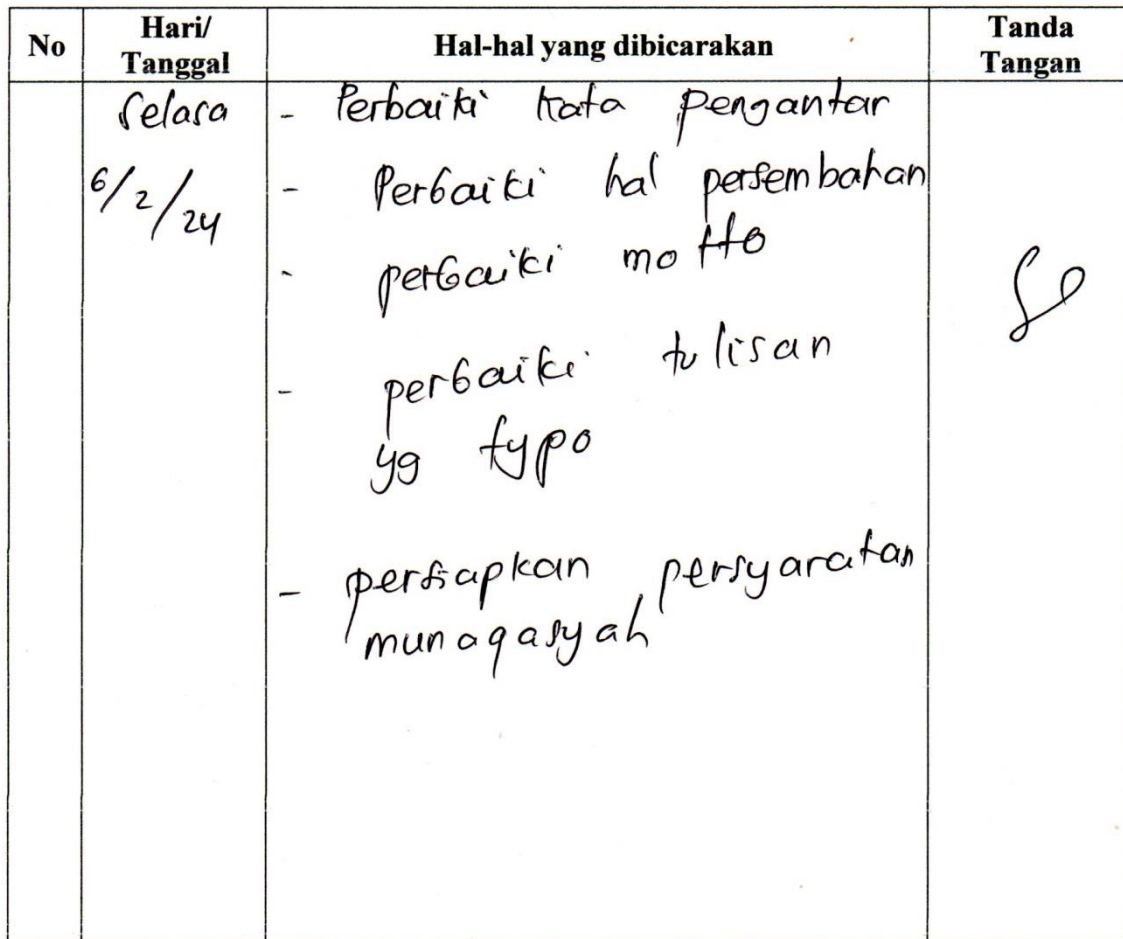 No
Hari/
Tanggal
Hal-hal yang dibicarakan
Tanda
Tangan
Selasa
6/2/24
- Perbaiki kata pengantar
- Perbaiki hal persembahan
- perbaiki motto
- perbaiki tulisan
yg typo
- persiapkan persyaratan
munaqasyah